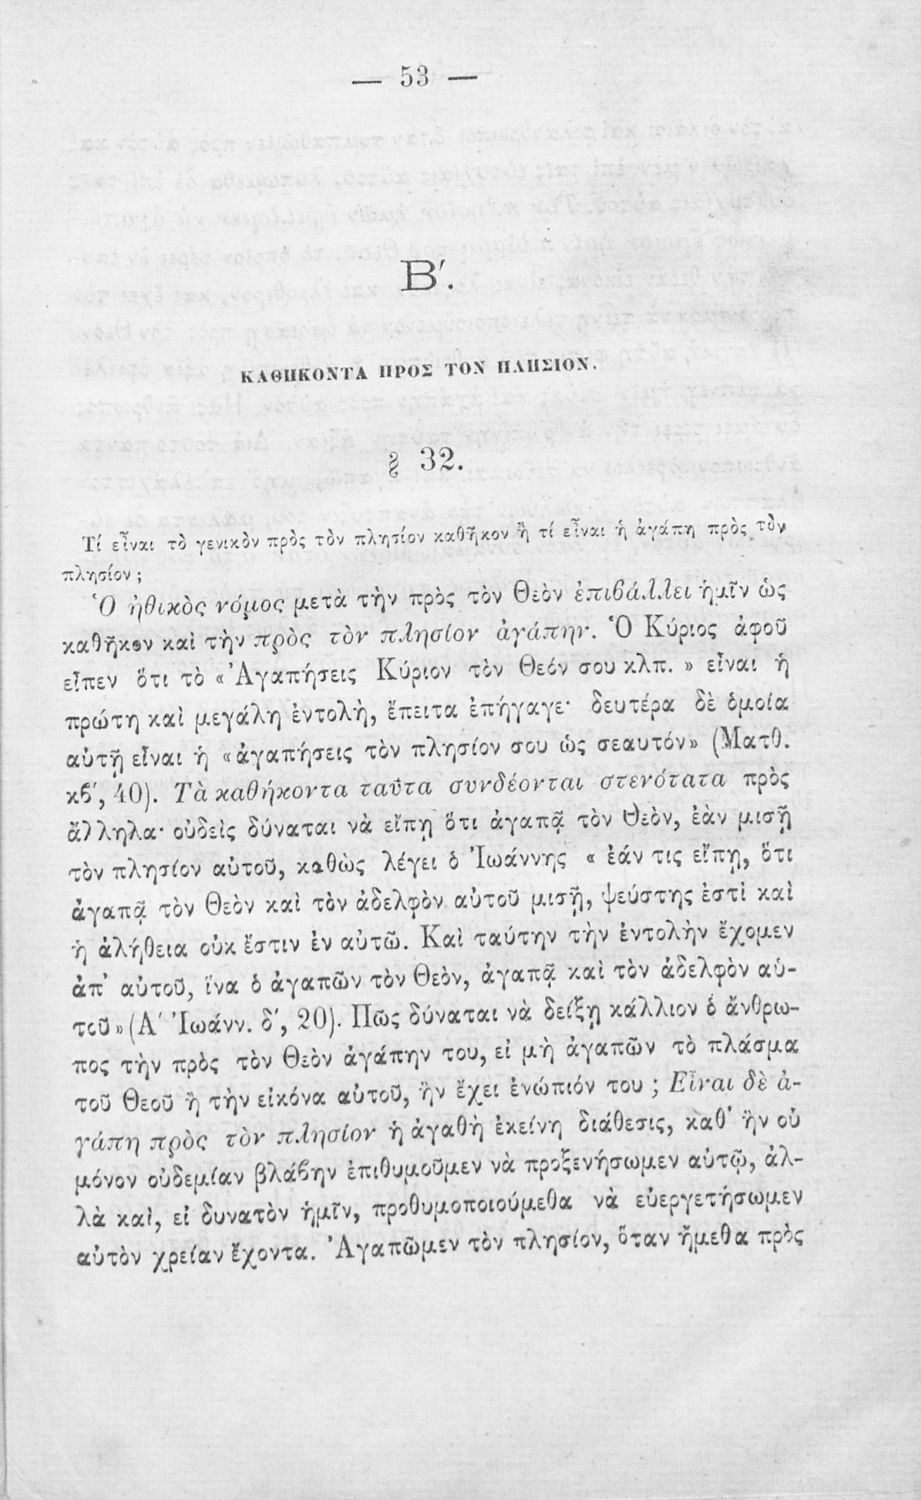 — 53 —
Β′.
ΚΑΘΗΚΟΝΤΑ ΠΡΟΣ ΤΟΝ ΠΛΗΣΙΟΝ.
§ 32.
Τί εἶναι τὸ γενικὸν πρὸς τὸν πλησίον καθῆκον ἢ τί εἶναι ἡ ἀγάπη πρὸς τὸν
πλησίον ;
Ὁ ἠθικὸς νόμος μετὰ τὴν πρὸς τὸν Θεὸν ἐπιβάλλει ἡμῖν ὡς
καθῆκον καὶ τὴν πρὸς τὸν πλησίον ἀγάπην. Ὁ Κύριος ἀφοῦ
εἶπεν ὅτι τὸ «Ἀγαπήσεις Κύριον τὸν Θεόν σου κλπ. » εἶναι ἡ
πρώτη καὶ μεγάλη ἐντολὴ, ἔπειτα ἐπήγαγε· δευτέρα δὲ ὁμοία
αὐτῇ εἶναι ἡ «ἀγαπήσεις τὸν πλησίον σου ὡς σεαυτόν» (Ματθ.
κβ′, 40). Τὰ καθήκοντα ταῦτα συνδέονται στενότατα πρὸς
ἄλληλα· οὐδεὶς δύναται νὰ εἴπῃ ὅτι ἀγαπᾷ τὸν Θεὸν, ἐὰν μισῇ
τὸν πλησίον αὐτοῦ, καθὼς λέγει ὁ Ἰωάννης « ἐάν τις εἴπῃ, ὅτι
ἀγαπᾷ τὸν Θεὸν καὶ τὸν ἀδελφὸν αὐτοῦ μισῇ, ψεύστης ἐστὶ καὶ
ἡ ἀλήθεια οὐκ ἔστιν ἐν αὐτῶ. Καὶ ταύτην τὴν ἐντολὴν ἔχομεν
ἀπ' αὐτοῦ, ἵνα ὁ ἀγαπῶν τὸν Θεὸν, ἀγαπᾷ καὶ τὸν ἀδελφὸν αὐ-
τοῦ» (Α′ Ἰωάνν. δ′, 20). Πῶς δύναται νὰ δείξῃ κάλλιον ὁ ἄνθρω-
πος τὴν πρὸς τὸν Θεὸν ἀγάπην του, εἰ μὴ ἀγαπῶν τὸ πλάσμα
τοῦ Θεοῦ ἢ τὴν εἰκόνα αὐτοῦ, ἣν ἔχει ἐνώπιόν του ; Εἶναι δὲ ἀ-
γάπη πρὸς τὸν πλησίον ἡ ἀγαθὴ ἐκείνη διάθεσις, καθ' ἣν οὐ
μόνον οὐδεμίαν βλάβην ἐπιθυμοῦμεν νὰ προξενήσωμεν αὐτῷ, ἀλ-
λὰ καὶ, εἰ δυνατὸν ἡμῖν, προθυμοποιούμεθα νὰ εὐεργετήσωμεν
αὐτὸν χρείαν ἔχοντα. Ἀγαπῶμεν τὸν πλησίον, ὅταν ἤμεθα πρὸς